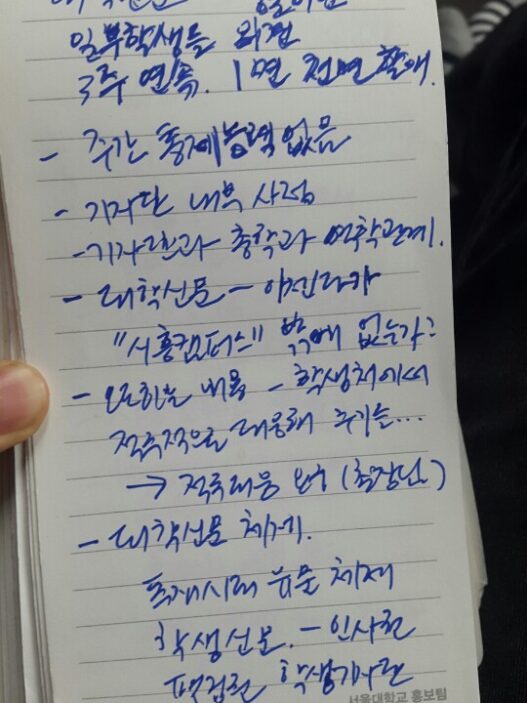 일부학생들 의견
3주 연속. 1면 전면 할애.
- 주간 통제능력 없음
- 기자단 내부 사정
- 기자단과 총학과 역학관계.
- 대학신문 - 아젠다가
"시흥캠퍼스" 밖에 없는가?
- 내용 - 학생처에서
적극적으로 대응해 주기를...
→ 적극대응 (학장단)
- 대학신문 체제.
독재시대 신문 체제
학생신문. - 인사권
편집권 학생기자단
서울대학교 홍보팀